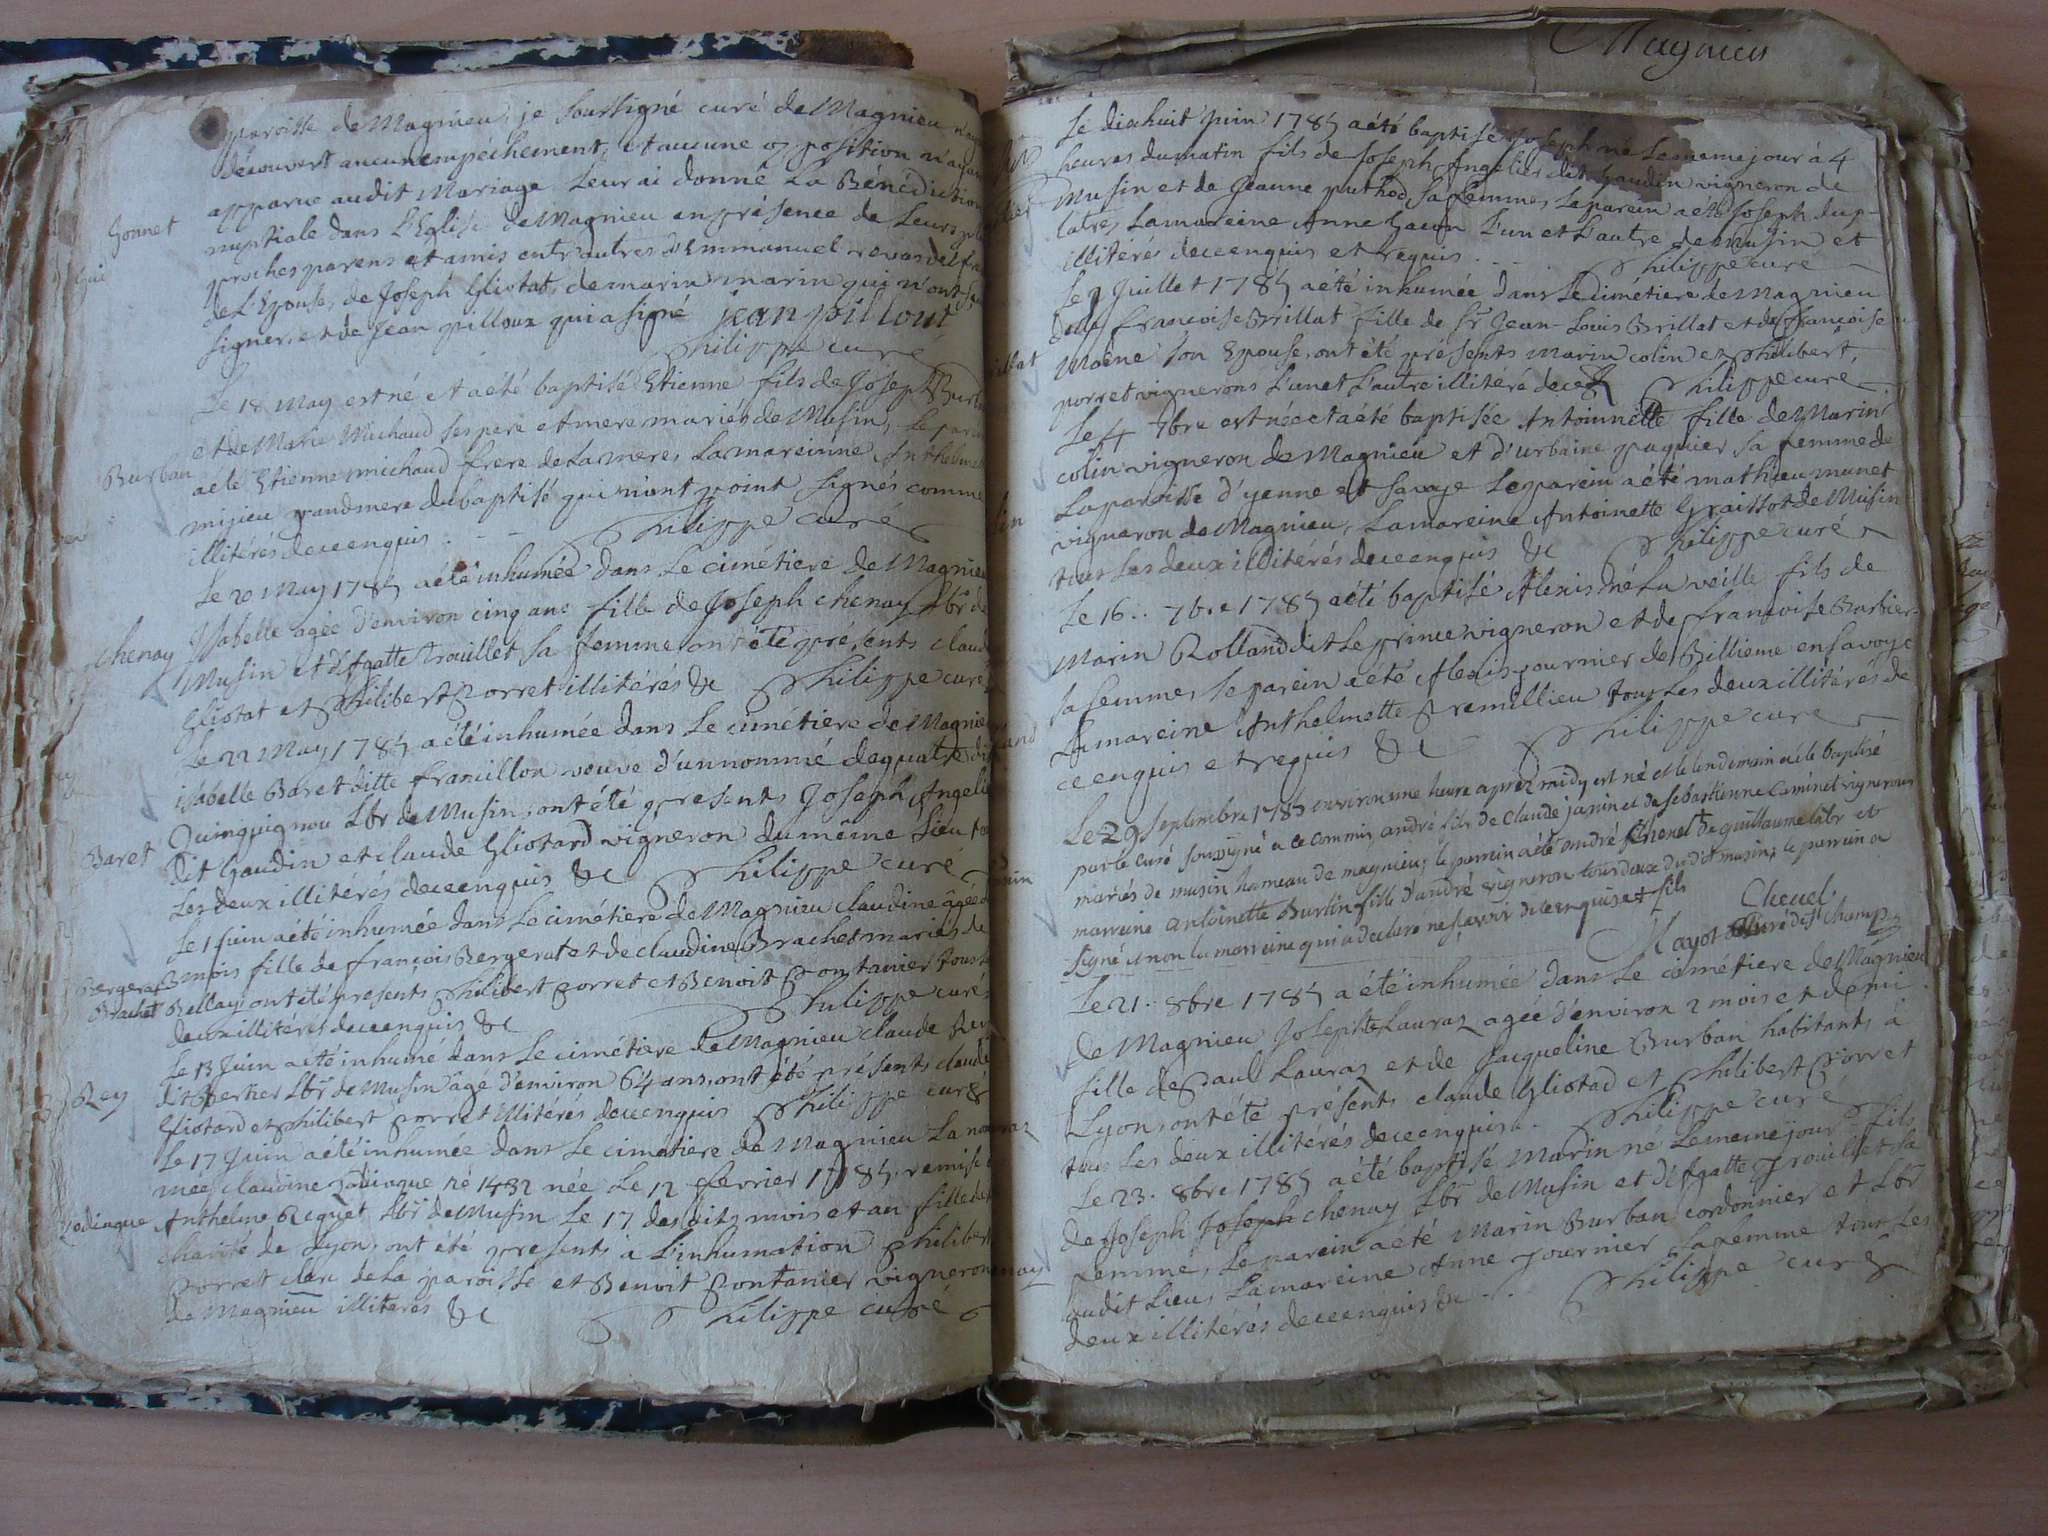 paroisse de Magnieu, je soussigné curé de Magnieu n'ayant
découvert aucun empéchement, et aucune opposition n'ayant
apparue audit Mariage Leur ai donné La Bénédiction
Gonnet
nuptiale dans L'Eglise de Magnieu en présence de Leurs
proches parens et amis entr'autres d'Emmanuel
de L'Epouse, de Joseph Gliotat, de marin marin qui n'ont
signer, et de jean pilloux qui a signé jean pillout
philippe curé
Le 18 May est né et a été baptisé Etienne fils de Joseph Burban
et de Marie Michaud ses pere et mere mariés de Musin, Le parein
Burban
a été Etienne michaud frere de La mere, La mareinne Anthelmette
mijieu grandmere du baptisé qui n'ont point signés comme
illitérés dece enquis . - - philippe curé
Le 20 May 1785 a été inhumée dans Le cimétiere de Magnieu
ysabelle agée d'environ cinq ans fille de Joseph chenay Lbr de
Chenay
Musin et d'Agatte trouillet sa femme ont été présents claude
Gliotat et philibert porret illitérés &c philippe curé
Le 22 May 1785 a été inhumée dans Le cimétiere de Magnieu
isabelle Baret ditte francillon veuve d'un nommé dequatre dit
Quinquignou Lbr de Musin, ont été presents Joseph Angelier
Baret
dit Gaudin et claude Gliotard vigneron du même Lieu tous
Les deux illitérés dece enquis &c philippe curé
Le 1 juin a été inhumée dans Le cimétiere de Magnieu claudine âgée de
mois fille de françois Bergerat et de claudine Brachet mariés de
Bergerat
Brachet
Bellay ont été presents philibert porret et Benoit pontanier tous
deux illitérés dece enquis &c philippe curé
Le 13 Juin a été inhumé dans Le cimétiere de Magnieu claude Rey
Rey
dit Bertier Lbr de Musin âgé d'environ 64 ans, ont été présents claude
Gliotard et philibert porret illitérés dece enquis philippe curé
Le 17 Juin a été inhumée dans Le cimetiere de Magnieu La nom
mee claudine zodiaque né 1432 née Le 12 février 1785 remise
Zodiaque
Anthelme Requet Lbr de Musin Le 17 desdits mois et an fille de
charité de Lyon, ont été presents à L'inhumation philibert
porret clerc de La paroisse et Benoit pontanier vigneron
de Magnieu illiterés &c philippe curé
Magnieu
Le dixhuit juin 1785 a été baptisé Joseph né Le meme jour à 4
heures du matin fils de Joseph Angelier dit Gaudin vigneron de
Musin et de Jeanne puthod sa femme, Le parein a été Joseph dup-
latre, La mareine Anne Gacon L'un et L'autre de Musin et
illitérés dece enquis et requis . . . philippe curé
Le 2 Juillet 1785 a été inhumée dans Le cimétiere de Magnieu
delle françoise Brillat fille de Sr Jean-Louis Brillat et de françoise
Moëne son Epouse, ont été présents Marin colin et philibert
porret vignerons L'un et L'autre illitéré dece &c philippe curé
Le 4 7bre est née et a été baptisée Antoinette fille de Marin
colin vigneron de Magnieu et d'urbaine paquier sa femme de
La paroisse d'yenne en savoye Le parein a été mathieu munet
vigneron de Magnieu, La mareine Antoinette Graissot de Musin
tous Les deux illitérés dece enquis &c philippe curé
Le 16 .. 7bre 1785 a été baptisé Alexis né La veille fils de
Marin Rolland dit Le prince vigneron et de françoise Barbier
sa femme, Le parein a été Alexis fournier de Billieme en savoye
La mareine Anthelmette premillieu tous Les deux illitérés de
ce enquis et requis &c philippe curé
Le 29 septembre 1785 environ une heure aprez midy est né et le lendemain a été baptisé
par le curé soussigné à ce commis, andré fils de claude janin et de sebastienne caminet vignerons
mariés de musin hameau de magnieu; le parrein a été andré chenel de guillaume lbr et
marreine antoinette Burtin fille d'andré vigneron tous deux dudit musin, le parrein a
signé et non la marreine qui a declaré ne sçavoir de ce enquise et fils Chenel.
Mayot curé de st champ
Le 21 .. 8bre 1785 a été inhumée dans Le cimétiere de Magnieu
de Magnieu Josephte Lauraz agée d'environ 2 mois et demi
fille de paul Lauraz et de Jacqueline Burban habitants à
Lyon, ont été présents claude Gliotad et philibert porret
tous Les deux illitérés dece enquis &. philippe curé
Le 23. 8bre 1785 a été baptisé Marin né Le meme jour fils
de Joseph Joseph chenay Lbr de Musin et d'Agatte trouillet sa
femme, Le parein a été Marin Burban cordonnier et Lbr
audit Lieu, La mareine Anne fournier sa femme tous Les
deux illitérés dece enquis &c . . philippe curé